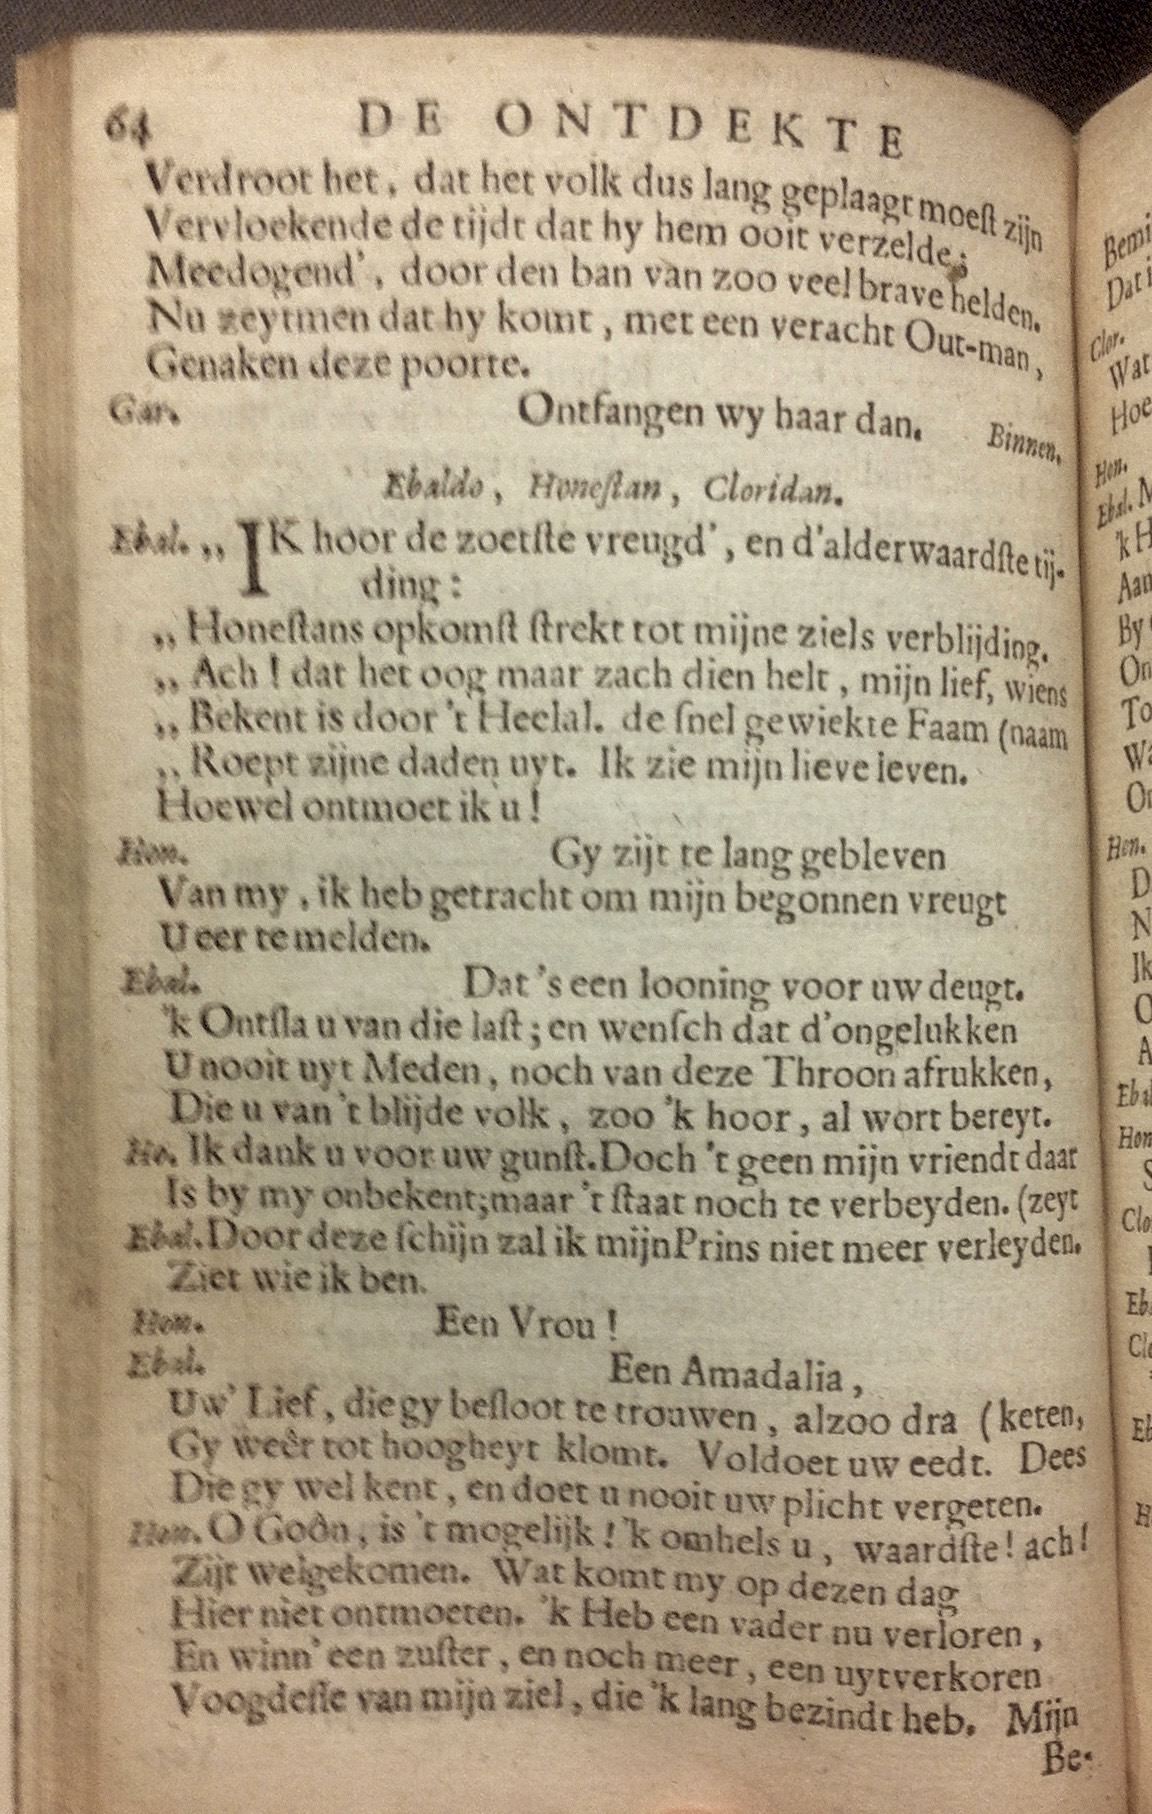 64 DE ONTDEKTE
Verdroot het, dat het volk dus lang geplaagt moeſt zijn
Vervloekende de tijdt dat hy hem ooit verzelde;
Meedogend', door den ban van zoo veel brave helden.
Nu zeytmen dat hy komt, met een veracht Out-man,
Genaken deze poorte.
Gar. Ontfangen wy haar dan. Binnen.
Ebaldo, Honeſtan, Cloridan.
Ebal. ,, IK hoor de zoetſte vreugd', en d'alderwaardſte tij-
ding:
,, Honeſtans opkomſt ſtrekt tot mijne ziels verblijding.
,, Ach! dat het oog maar zach dien helt, mijn lief, wiens
,, Bekent is door 't Heelal. de ſnel gewiekte Faam (naam
,, Roept zijne daden uyt. Ik zie mijn lieve leven.
Hoewel ontmoet ik u!
Hon. Gy zijt te lang gebleven
Van my, ik heb getracht om mijn begonnen vreugt
U eer te melden.
Ebal. Dat 's een looning voor uw deugt.
'k Ontſla u van die laſt; en wenſch dat d'ongelukken
U nooit uyt Meden, noch van deze Throon afrukken,
Die u van 't blijde volk, zoo 'k hoor, al wort bereyt.
Ho. Ik dank u voor uw gunſt. Doch 't geen mijn vriendt daar
Is by my onbekent; maar 't ſtaat noch te verbeyden. (zeyt
Ebal. Door deze ſchijn zal ik mijn Prins niet meer verleyden.
Ziet wie ik ben.
Hon. Een Vrou!
Ebal. Een Amadalia,
Uw' Lief, die gy beſloot te trouwen, alzoo dra (keten,
Gy weêr tot hoogheyt klomt. Voldoet uw eedt. Dees
Die gy wel kent, en doet u nooit uw plicht vergeten.
Hon. O Goôn, is 't mogelijk! 'k omhels u, waardſte! ach!
Zijt welgekomen. Wat komt my op dezen dag
Hier niet ontmoeten. 'k Heb een vader nu verloren,
En winn' een zuſter, en noch meer, een uytverkoren
Voogdeſſe van mijn ziel, die 'k lang bezindt heb. Mijn
Be-